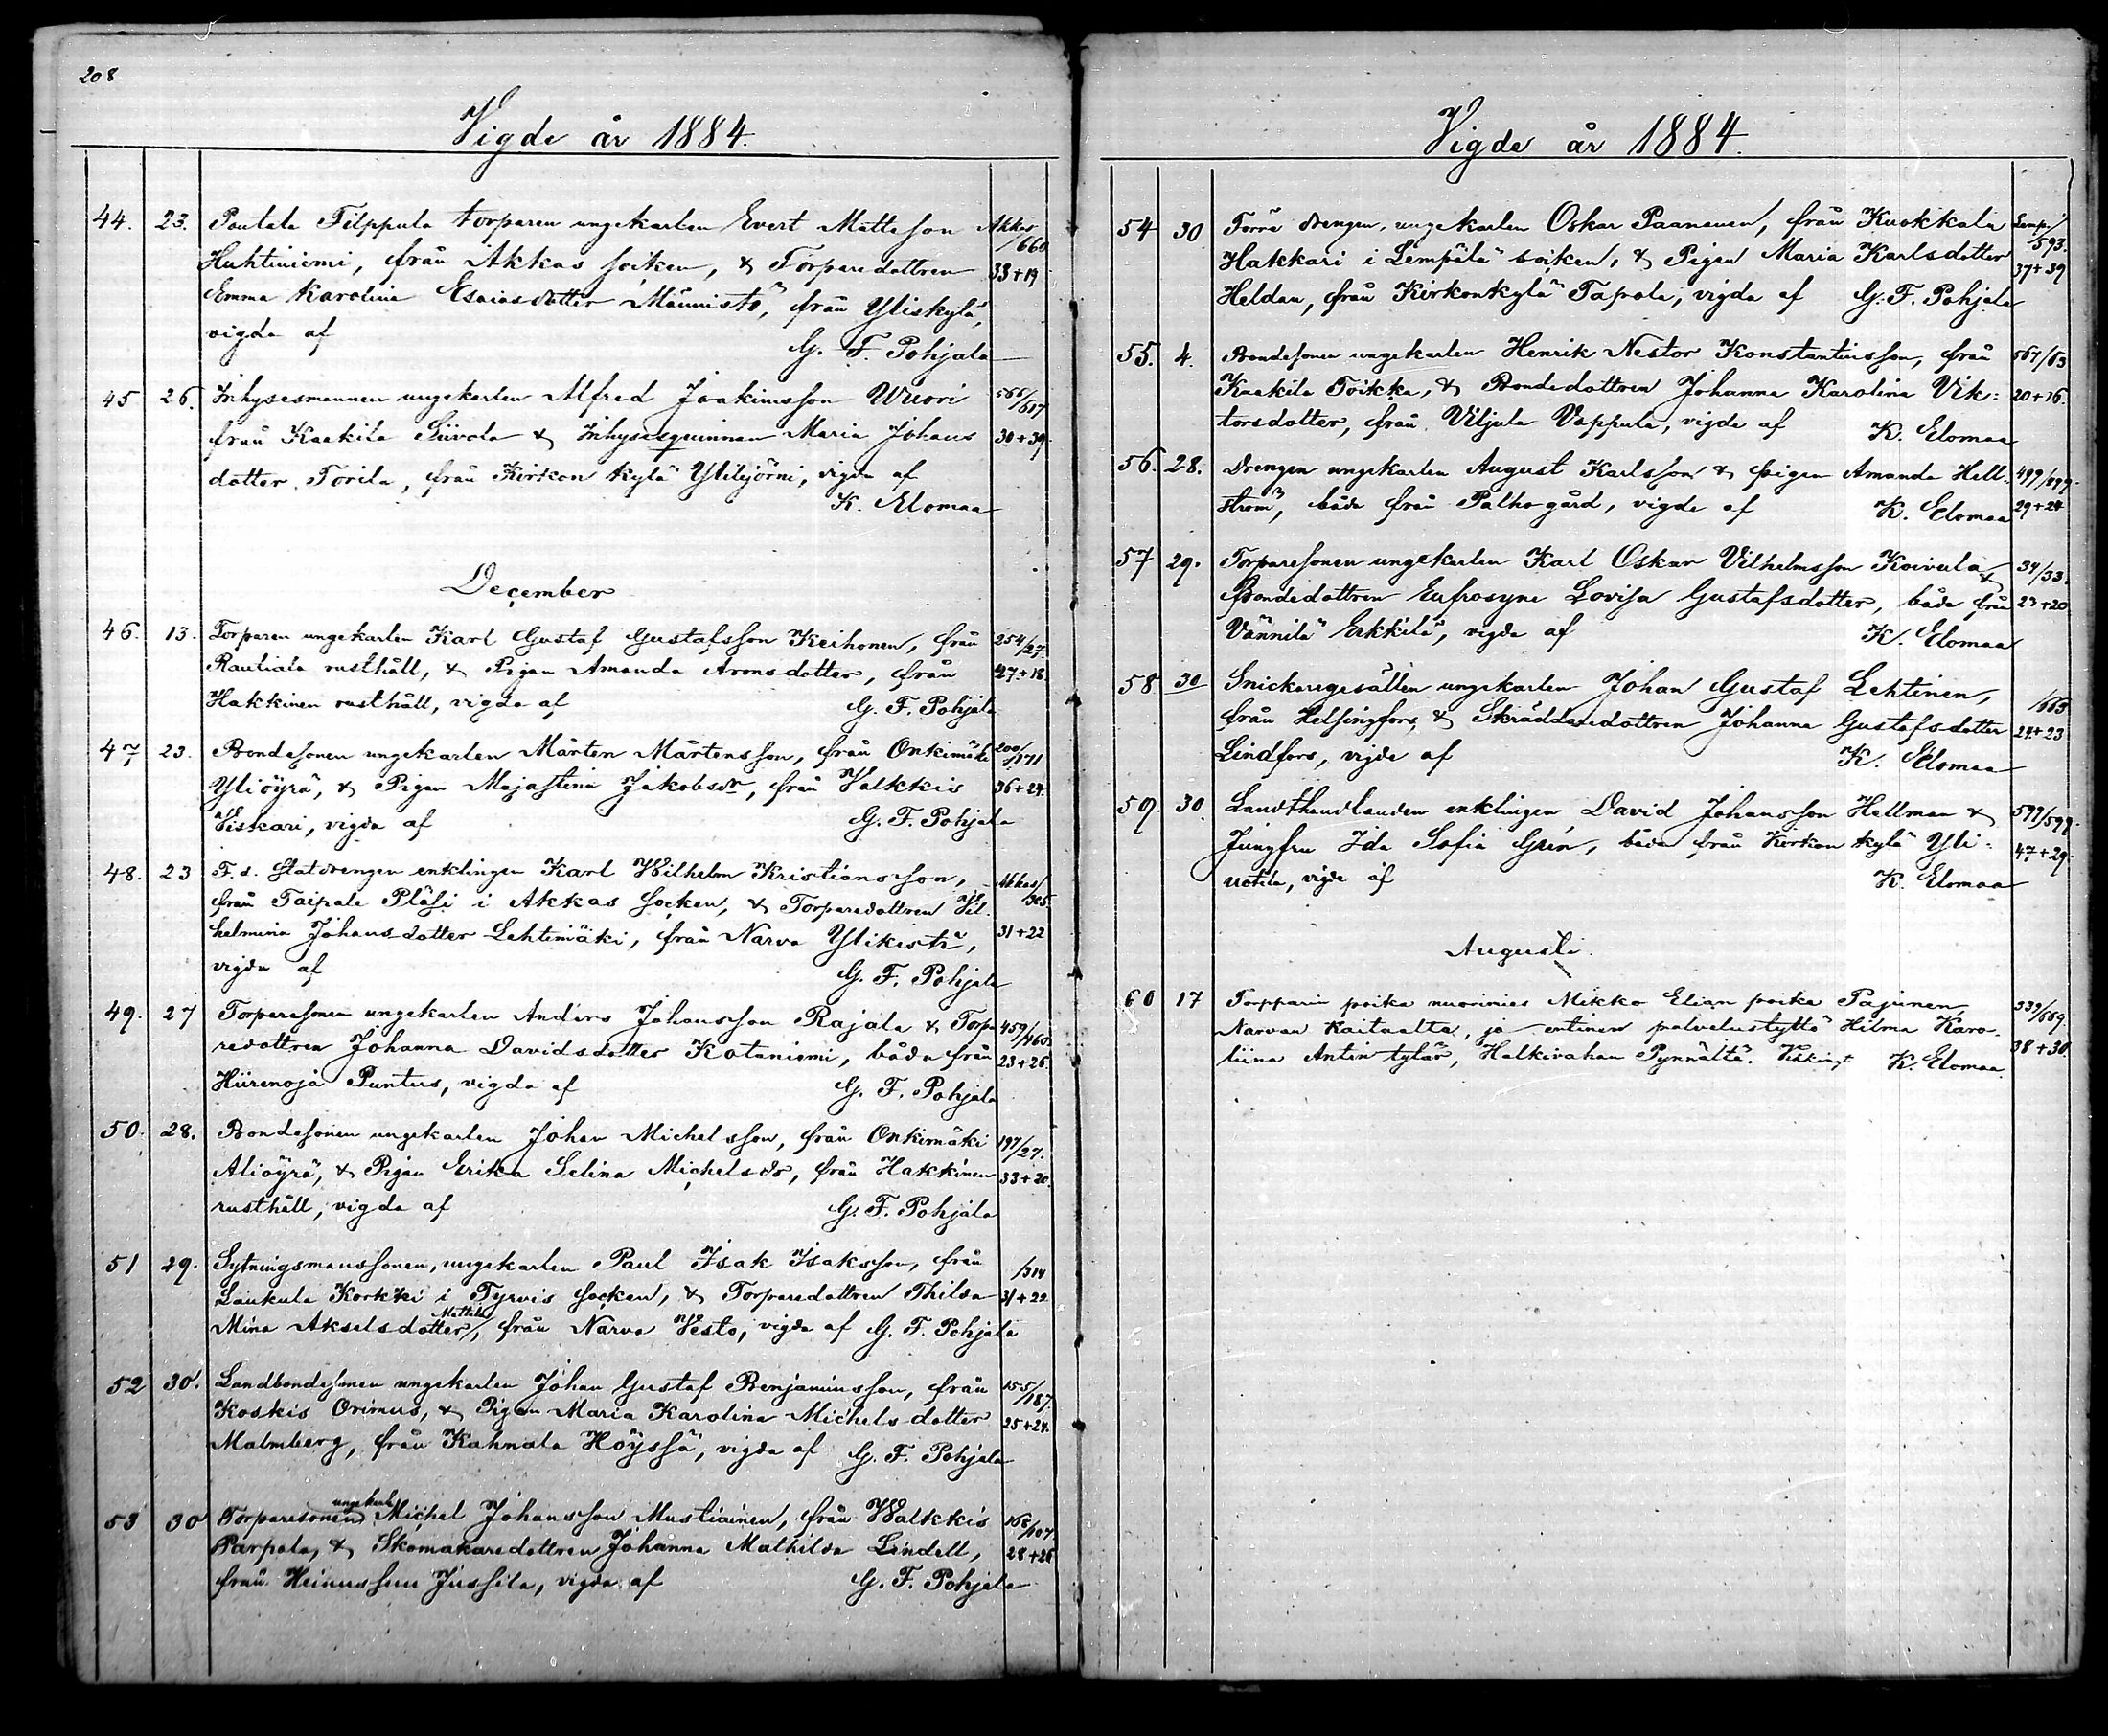 208
Vigde år 1884.
44. 23. Poutala Filppula torparen ungekarlen Evert Mattsson Akkas/660
Huhtiniemi, från Akkas socken, & Torparedottren 33+19
Emma Karolina Esaiasdotter Männistö, från Yliskylä,
vigda af G. F. Pohjala
45 26. Inhysesmannen ungekarlen Alfred Joakimsson Wuori 566/617
från Kaakila Siivola & Inhysesqvinnan Maria Johans 30+39.
dotter Torila, från Kirkon kylä Ylilijörni, vigda af
K. Elomaa
December
46. 13. Torparen ungekarlen Karl Gustaf Gustafsson Keihonen, från 254/27.
Rautiala rusthåll, & Pigan Amanda Aronsdotter, från 27+18.
Hakkinen rusthåll, vigda af G. F. Pohjala
47 23. Bondesonen ungekarlen Mårten Mårtensson, från Onkimäki 200/171
Yliöyrä, & Pigan Majastina Jakobsdr, från Valkkis 36+24.
Viskari, vigda af G. F. Pohjala
48. 23 F. d. Statdrengen enklingen Karl Wilhelm Kristiansson, Akkas/305.
från Taipale Pläsi i Akkas socken, & Torparedottren Vil-
helmina Johansdotter Lehtimäki, från Narva Ylikistu, 31+22
vigda af G. F. Pohjala
49. 27 Torparesonen ungekarlen Anders Johansson Rajala & Torpa 459/460
redottren Johanna Davidsdotter Kotaniemi, båda från 23+26.
Hiirenoja Puntus, vigda af G. F. Pohjala
50. 28. Bondesonen ungekarlen Johan Michelsson, från Onkimäki 197/27.
Alioÿrä, & Pigan Erika Selina Michelsdr, från Hakkinen 33+20.
rusthåll, vigda af G. F. Pohjala
51 29. Sytningsmanssonen, ungekarlen Paul Isak Isaksson, från /314
Laukula Korkki i Tyrvis socken, & Torparedottren Thilda 31+22.
Mina Akselsdotter Mattila, från Narva Vesto, vigda af G. F. Pohjala
52 30. Landbondesonen ungekarlen Johan Gustaf Benjaminsson, från 155/187.
Koskis Orimus, & Pigan Maria Karolina Michelsdotter 25+24.
Malmberg, från Kahmala Höyssä, vigda af G. F. Pohjala
53 30 Torparesonen ungekarl Michel Johansson Mustiainen, från Walkkis 168/107.
Parpala, & Skomakaredottren Johanna Mathilda Lindell, 28+26
från Heinussuu Jussila, vigda af G. F. Pohjala
Vigde år 1884.
54 30 Förra drengen, ungekarlen Oskar Paananen, från Kuokkala Lemp./593.
Hakkari i Lempälä soiken, & Pigan Maria Karlsdotter 37+39
Heldan, från Kirkonkylä Tapola, vigda af G. F. Pohjala
55. 4. Bondesonen ungekarlen Henrik Nestor Konstantinsson, från 567/63
Kaakila Toikka, & Bondedottren Johanna Karolina Vik: 20+16.
torsdotter, från Viljula Vappula, vigda af K. Elomaa
56. 28. Drengen ungekarlen August Karlsson & pigan Amanda Hell: 499/499.
ström, båda från Palhogård, vigda af K. Elomaa 29+24
57 29. Torparesonen ungekarlen Karl Oskar Vilhelmsson Koivula & 34/33.
Bondedottren Eufrosyne Lovisa Gustafsdotter, båda från 23+20
Vännilä Erkkilä, vigda af K. Elomaa
58 30 Snickaregesällen ungekarlen Johan Gustaf Lehtinen, /663
från Helsingfors, & Skräddaredottren Johanna Gustafsdotter 24+23
Lindfors, vigda af K. Elomaa
59. 30. Landthandlanden enklingen David Johansson Hellman & 599/599.
Jungfru Ida Sofia Grén, båda från Kirkon kylä Yli: 47+29.
uotila, vigda af K. Elomaa
Augusti.
60 17 Torpparin poika nuorimies Mikko Elian poika Pajunen, 339/669.
Narvan Kaitaalta, ja entinen palvelustyttö Hilma Karo-
liina Antin tytär, Halkivahan Pynnältä. Vihkinyt K. Elomaa. 38+30.